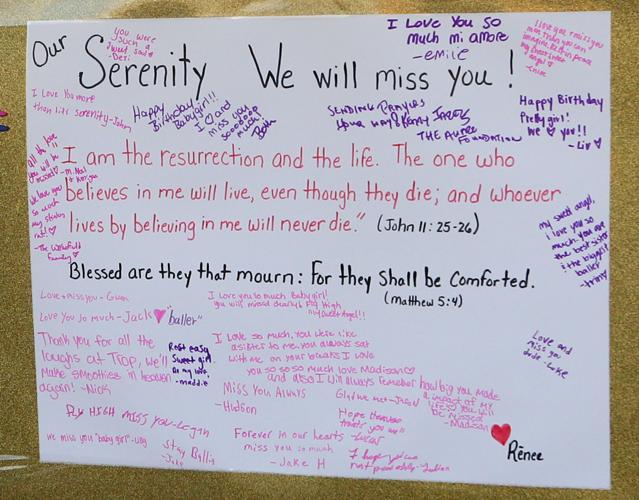 Our Serenity We will miss you!
you were such a sweet soul -Desi
I Love You so much mi amore -emilie
I Love You more than life Serenity-John
Happy Birthday Babygirl!! I ♡ and miss you sooooooo much! Beth
SENDING PRAYERS
THE
FOUNDATION
Happy Birthday
Pretty girl!
We ♥ you!!
-Liv ♡
I am the resurrection and the life. The one who
believes in me will live, even though they die; and whoever
lives by believing in me will never die." (John 11: 25-26)
we love you so much my
-The
Family
my sweet angel,
i love you so
much. you are
the best sister
& the biggest
baller
-trinity
Blessed are they that mourn: For they Shall be Comforted.
(matthew 5:4)
Love + miss you - Gwen
Love you so much - Jack ♥ "baller"
I love you so much Babygirl!
you will missed dearly fly high
my sweet Angel!!
Thank you for all the
laughs at Trop, we'll
Make smoothies in heaven
again! - Nick
Rest easy
Sweet girl.
my love
-maddie
I love so much, you were like
a sister to me. you always sat
with me on your breaks I love
you so so so much love Madison♡
and also I will always remember how big you made
a impact of my
life so you will
be missed
-Madison
Love and
miss you
dude - Luke
Miss You Always
- Hudson
Fly HIGH miss you-Logan
we miss you "baby girl"
Stay Ballin
-Jake
Forever in our hearts
miss you so much
- Jake H
Hope Heaven
treats you well
-Lucas
I hope you
rest peacefully-Julian
♥ Rēnee